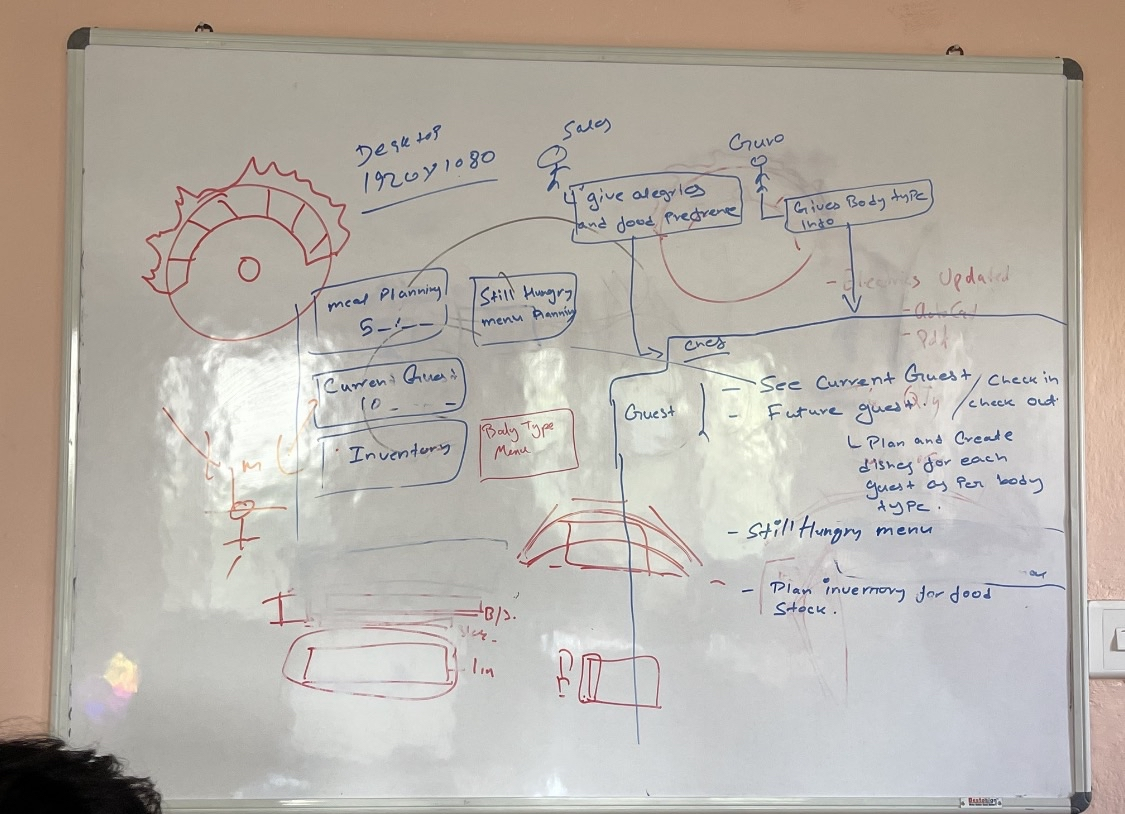 Desktop
1920x1080
Sales
Guru
give alegries
and food Prefrence
Gives Body type
Info
Meal Planning
5
Still Hungry
menu Planning
Current Guest
10
Inventory
Body Type
Menu
Updated
- Pdf
Guest
- See Current Guest / Check in
- Future guest / check out
Plan and Create
dishes for each
guest as Per body
type.
- Still Hungry menu
- Plan invernory for food
Stock.
B/S.
1in